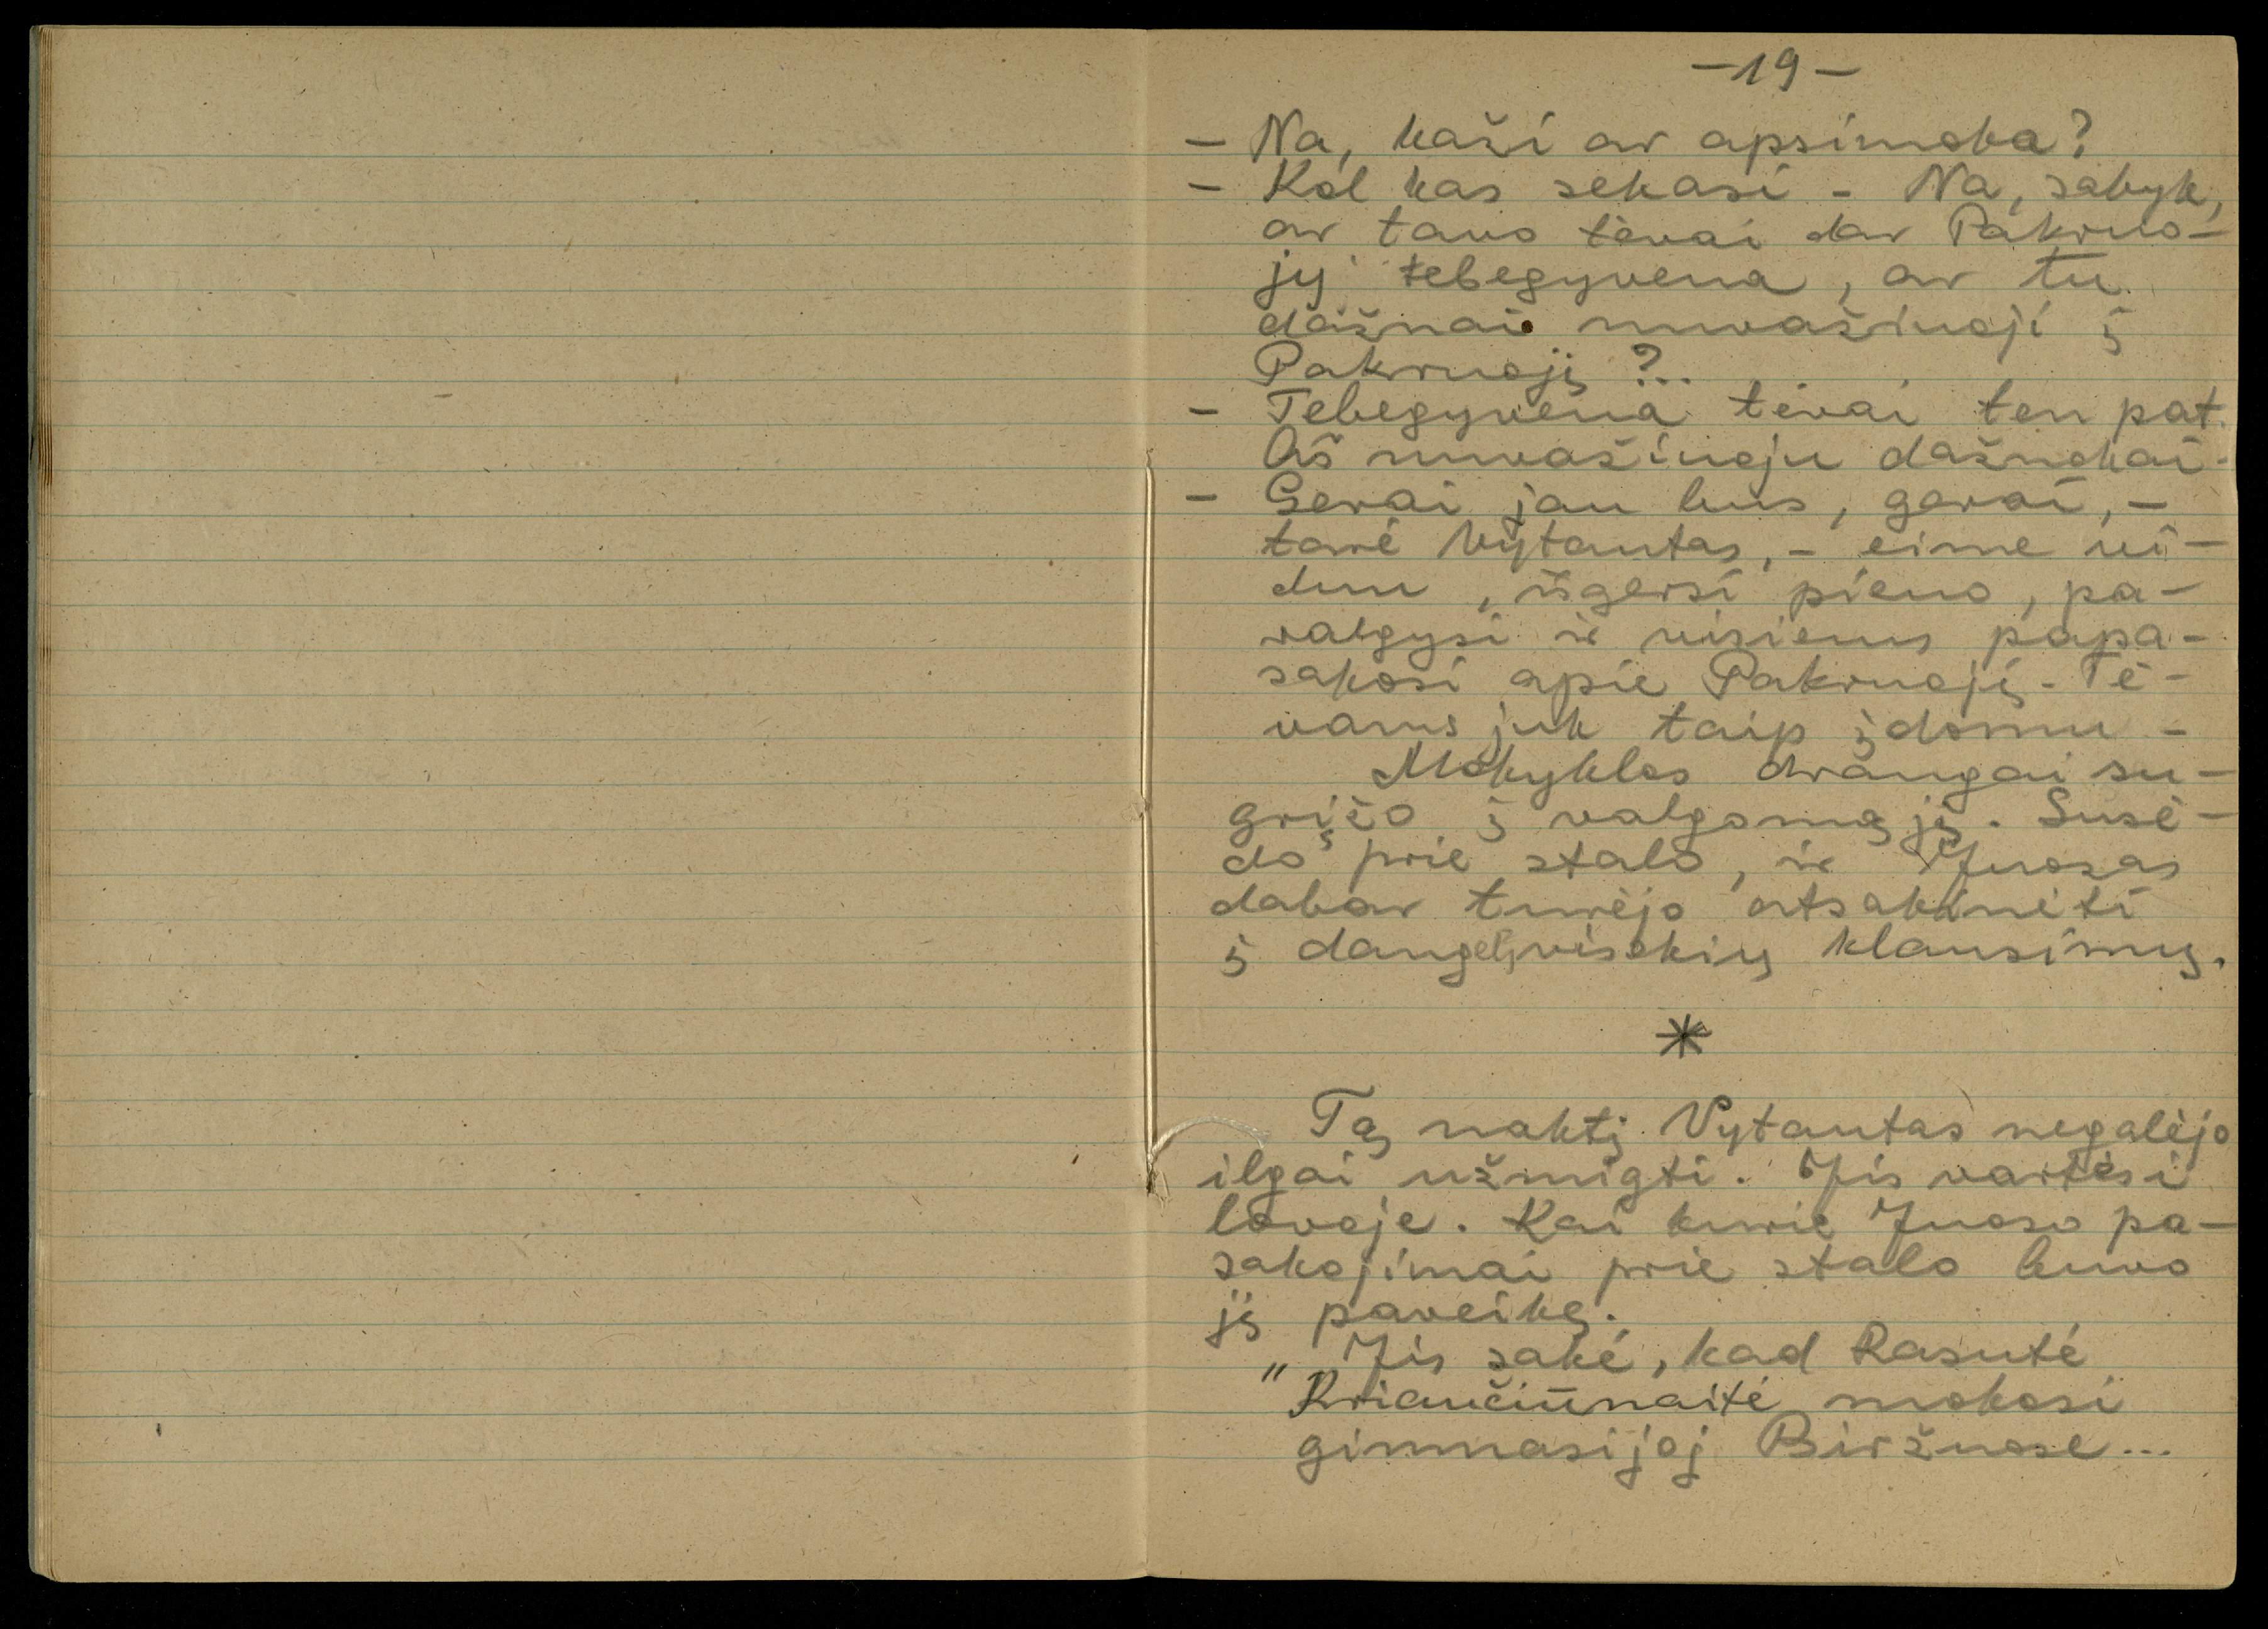 —19—
— Na, kaži ar apsimoka?
— Kol kas sekasi - Na, sakyk,
ar tavo tėvai dar Pakruo-
jy tebegyvena, ar tu
dažnai nuvažiuoji į
Pakruoję ?...
— Tebegyvena tėvai ten pat.
Aš nuvažiuoju dažnokai.
— Gerai jau bus, gerai, —
tarė Vytautas, - eime vi-
dun, išgersi pieno, pa-
valgysi ir visiems papa-
sakosi apie Pakruojį. Tė-
vams juk taip įdomu -
Mokyklos draugai su-
grįžo į valgomąjį. Susė-
do prie stalo, ir Juozas
dabar turėjo atsakinėti
į daugelį visokių klausimų.
*
Tą naktį Vytautas negalėjo
ilgai užmigti. Jis vartėsi
lovoje. Kai kurie Juoso pa-
sakojimai prie stalo buvo
jį paveikę.
" Jis sakė, kad Rasutė
Kriaučiūnaitė mokosi
gimnasijoj Biržuose...